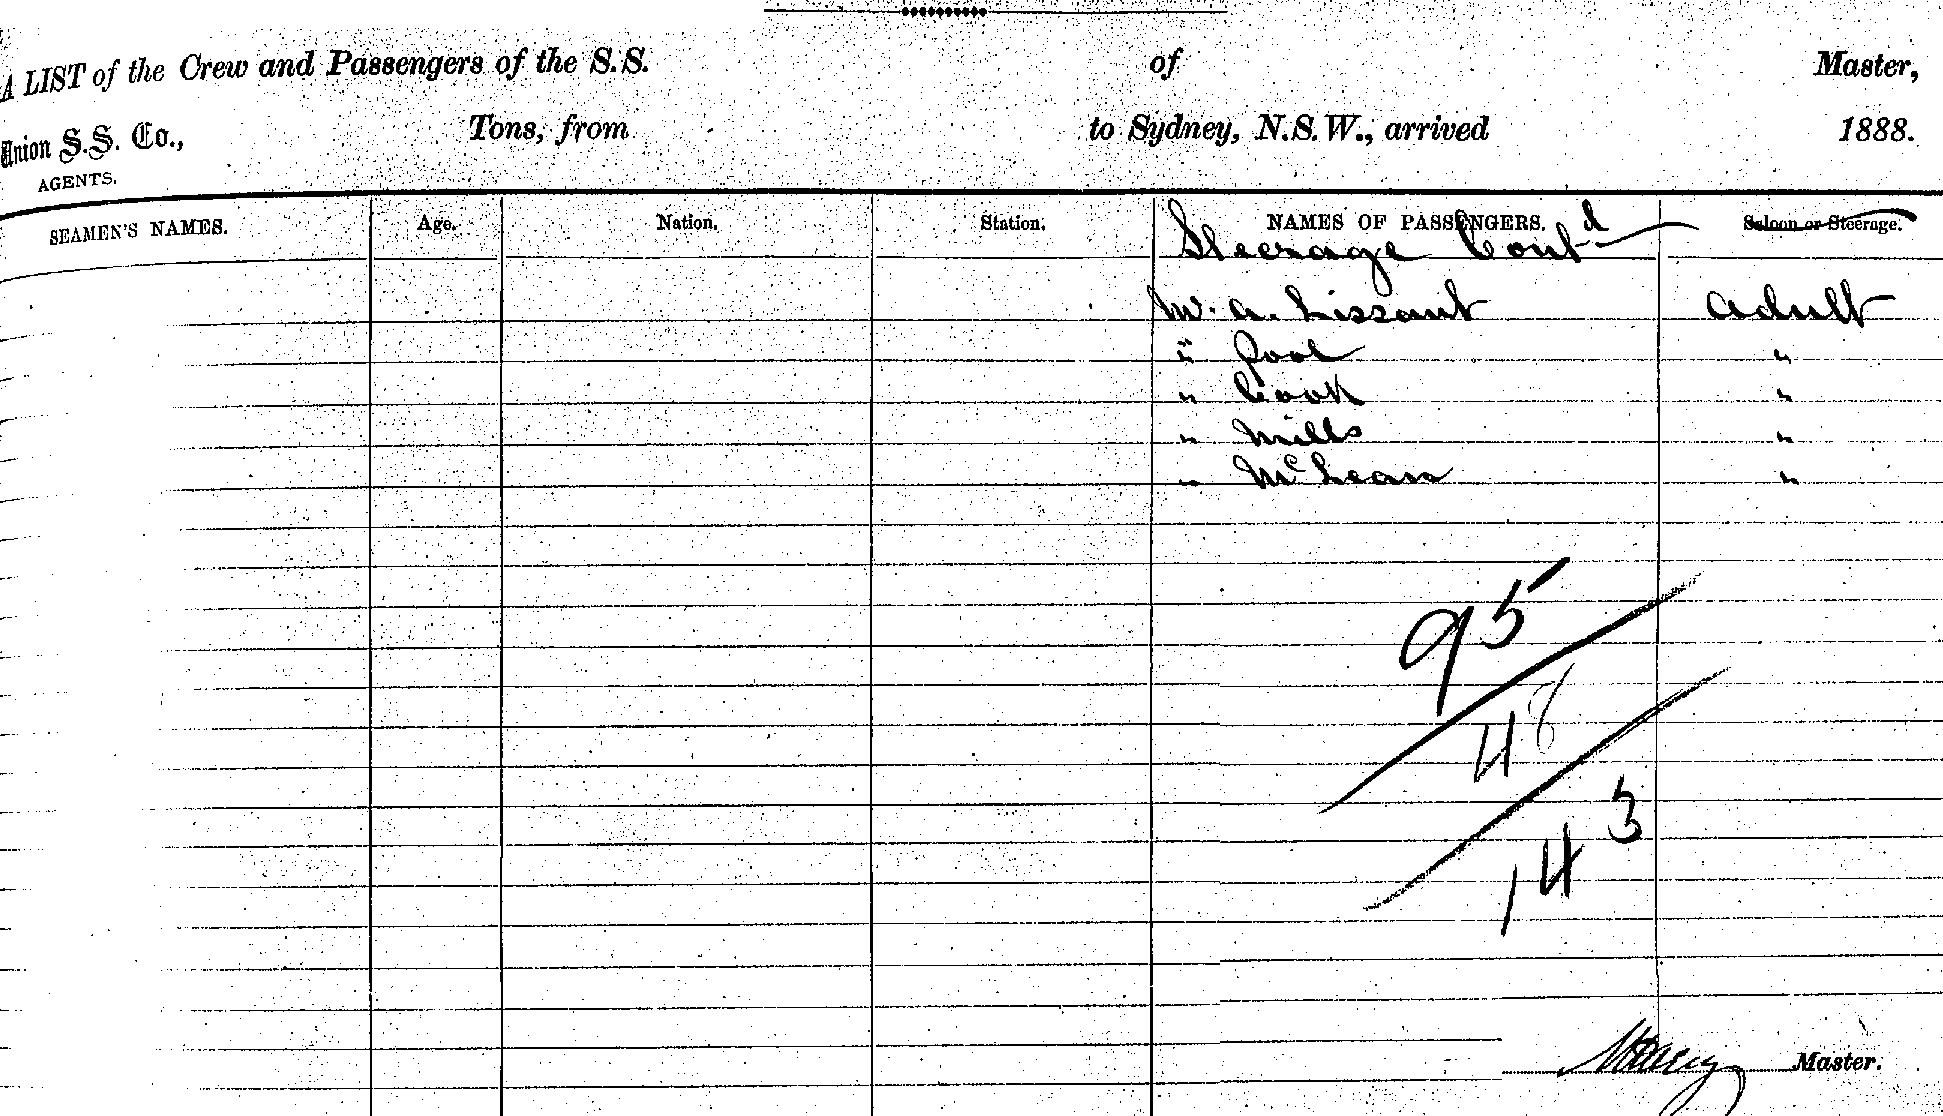 A LIST of the Crew and Passengers of the S.S. of Master,
Union S.S. Co., Tons, from to Sydney, N.S.W., arrived 1888.
AGENTS.
SEAMEN'S NAMES. Age. Nation. Station. NAMES OF PASSENGERS. Saloon or Steerage.
Steerage Contd
Mr. A. Lissant Adult
" Pool "
" Cook "
" Mills "
" McLean "
95
48
143
Master.